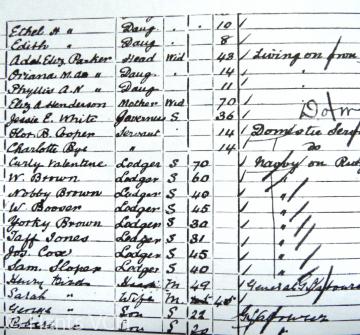 Ethel H " Daug. . . 10 /
Edith " Daug. . . 8 /
Adel Eliz Parker Head Wid 43 / Living on own
Oriana M. " Daug. . 14 /
Phyllis A. N " Daug. . 11 /
Eliz A Henderson Mother Wid 70 /
Jessie E. White Governess S 36 /
Flor. B. Cooper Servant . 14 / Domestic Serv
Charlotte Bye " 14 / do
Curly Valentine Lodger S 70 / Navvy on
W. Brown Lodger S 60 / "
Nobby Brown Lodger S 40 / "
W. Hoover Lodger S 45 / "
Yorky Brown Lodger S 30 / "
Taff Jones Lodger S 31 / "
Jos. Cox Lodger S 45 / "
Sam. Sloper Lodger S 40 / "
Henry Head M 49 / General Labourer
Sarah " Wife M 45
George " Son S 22
" Son S 20